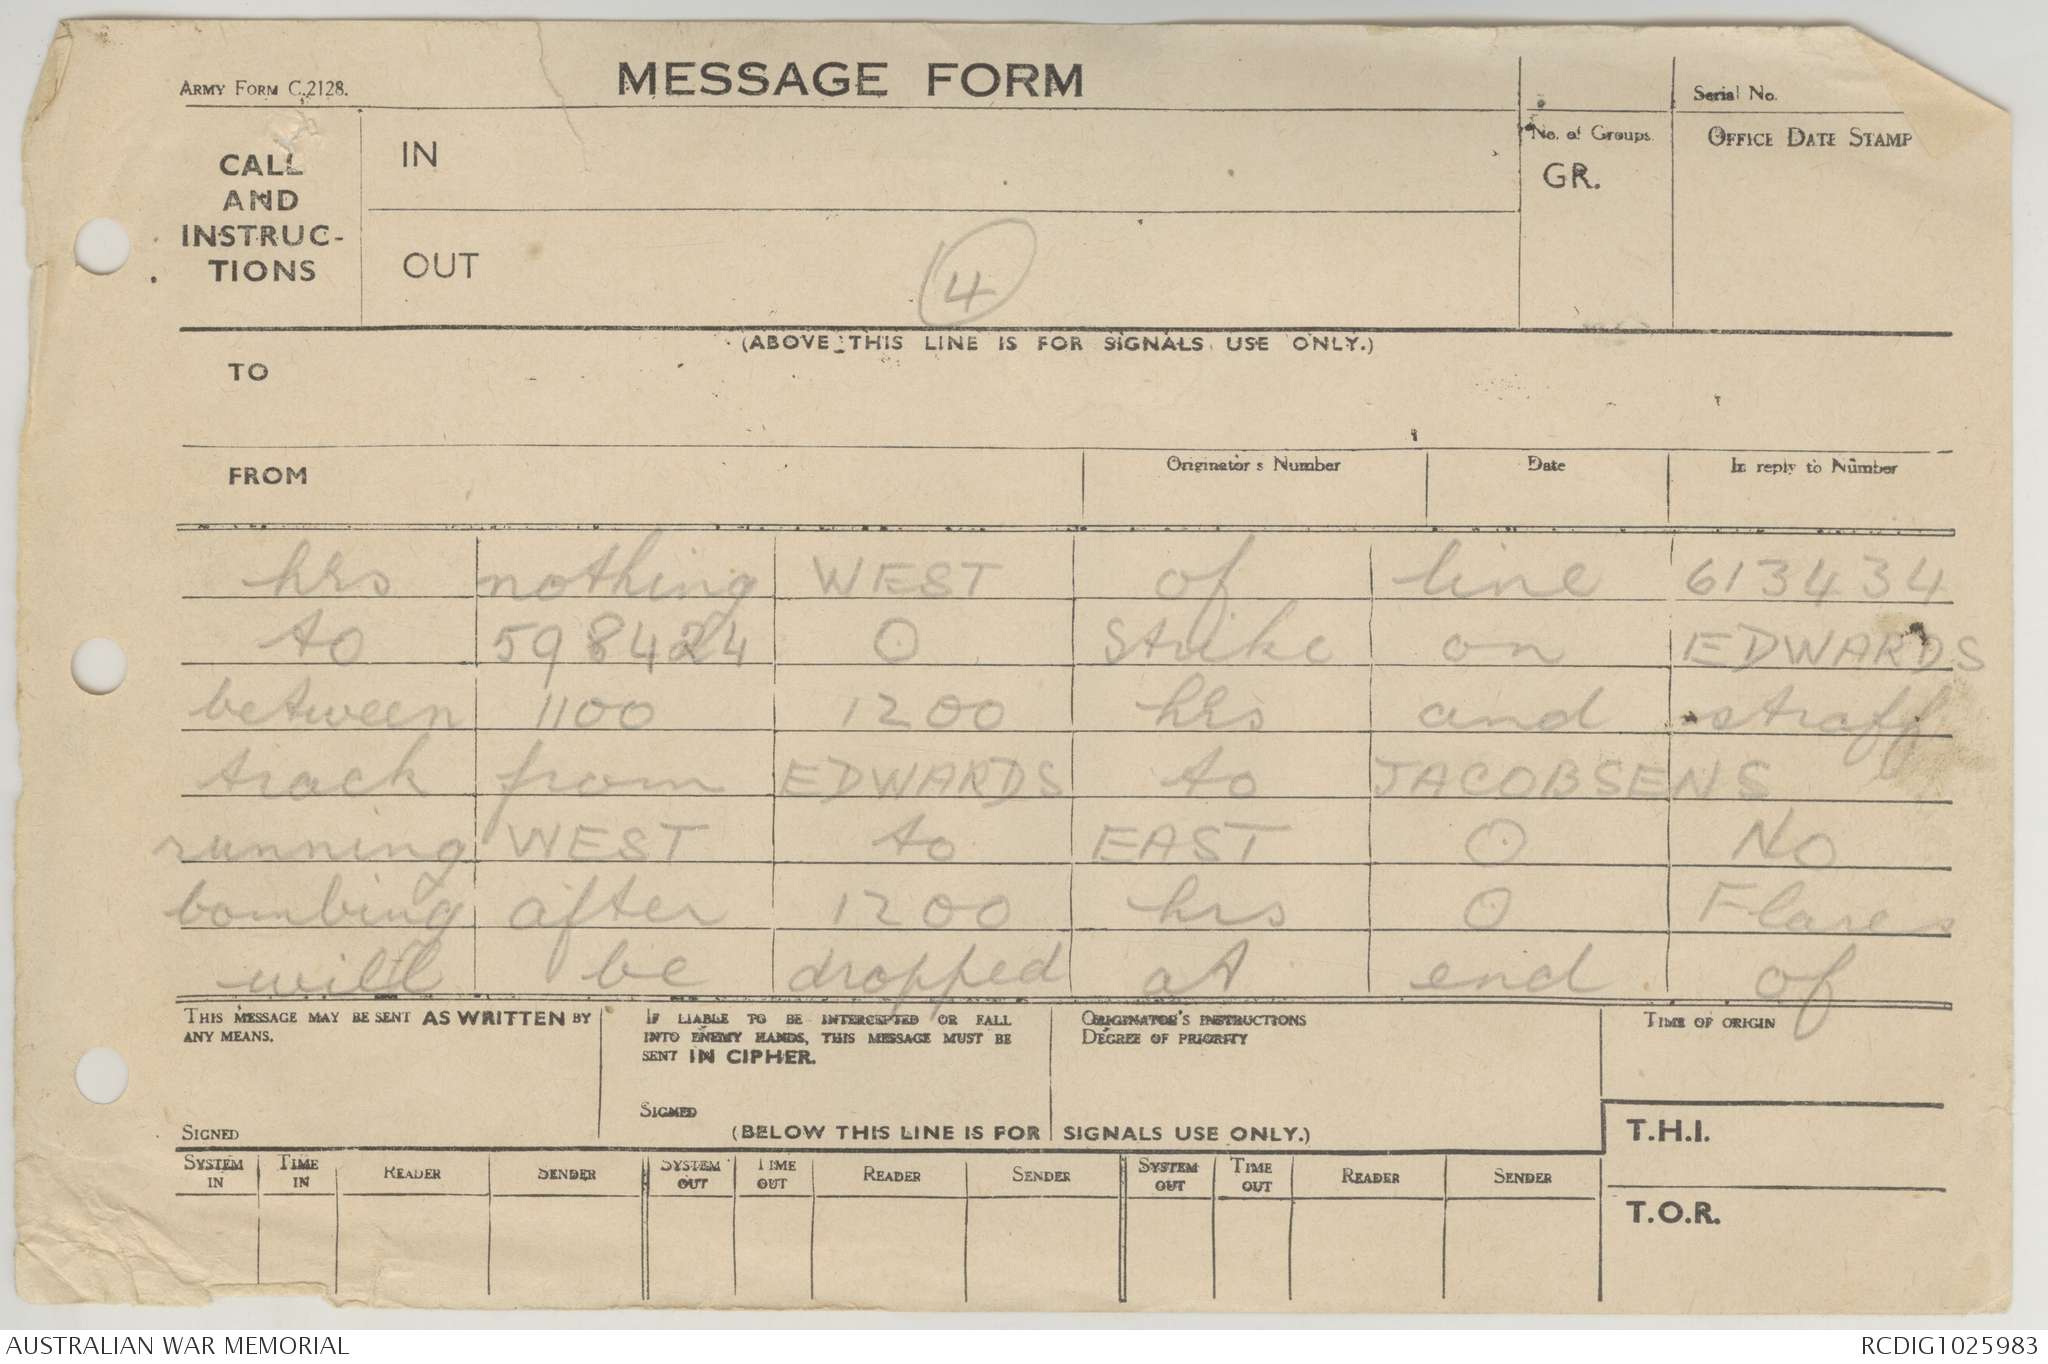 ARMY FORM C.2128.
MESSAGE FORM
Serial No.
CALL
AND
INSTRUC-
TIONS
IN
OUT
④
No. of Groups.
GR.
OFFICE DATE STAMP
(ABOVE THIS LINE IS FOR SIGNALS USE ONLY.)
TO
FROM
Originator's Number
Date
In reply to Number
hrs nothing WEST of line 613434
to 598424 O Strike on EDWARDS
between 1100 1200 hrs and straff
track from EDWARDS to JACOBSENS
running WEST to EAST O No
bombing after 1200 hrs O Flares
will be dropped at end of
THIS MESSAGE MAY BE SENT AS WRITTEN BY
ANY MEANS.
SIGNED
IF LIABLE TO BE INTERCEPTED OR FALL
INTO ENEMY HANDS, THIS MESSAGE MUST BE
SENT IN CIPHER.
SIGNED
ORIGINATOR'S INSTRUCTIONS
DEGREE OF PRIORITY
TIME OF ORIGIN
(BELOW THIS LINE IS FOR SIGNALS USE ONLY.)
T.H.I.
T.O.R.
SYSTEM IN TIME IN READER SENDER SYSTEM OUT TIME OUT READER SENDER SYSTEM OUT TIME OUT READER SENDER
AUSTRALIAN WAR MEMORIAL
RCDIG1025983